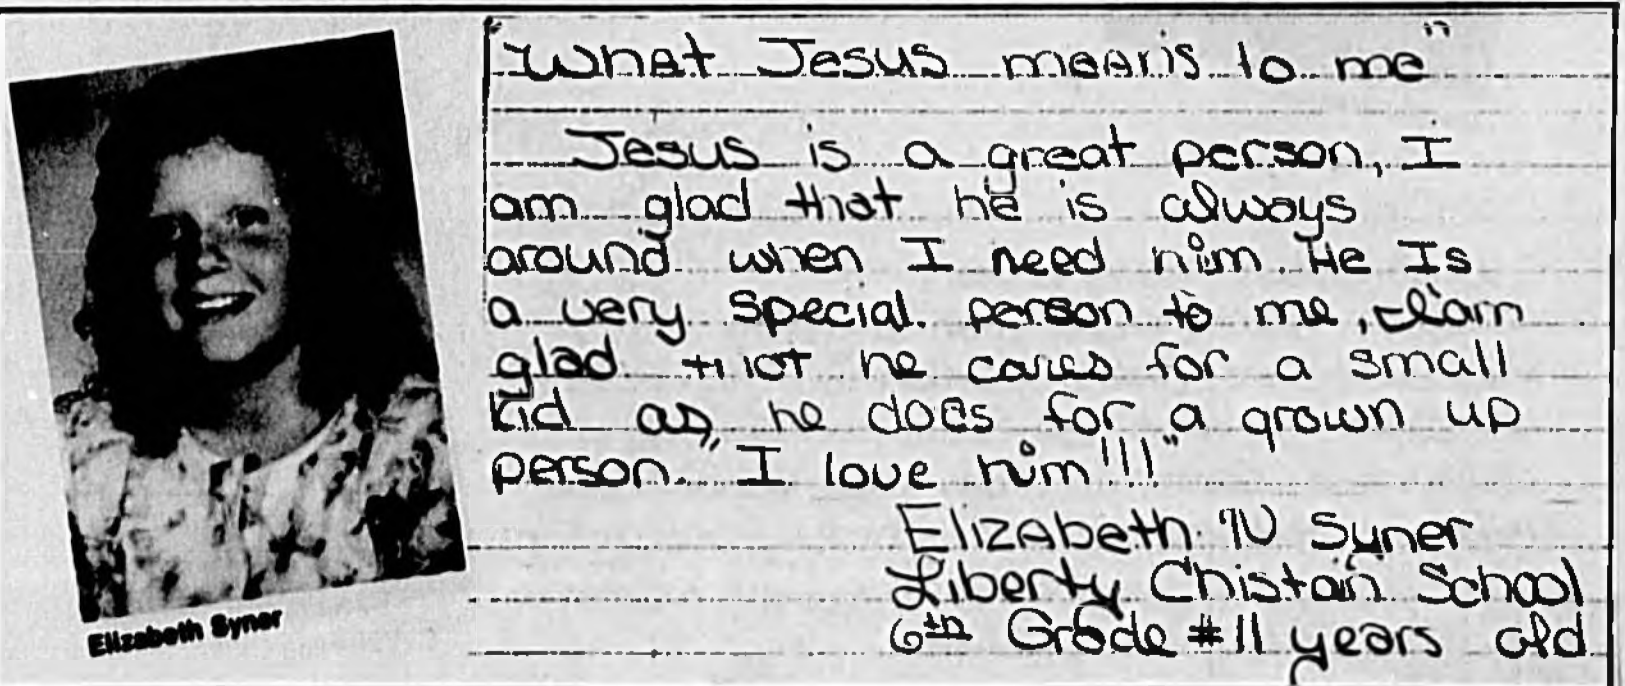 "What Jesus means to me"
Jesus is a great person, I
am glad that he is always
around when I need him. He Is
a very special person to me, I am
glad that he cares for a small
kid as, he does for a grown up
person. "I love him!!!"
Elizabeth N Syner
Liberty Chistain School
6th Grade #11 years old
Elizabeth Syner